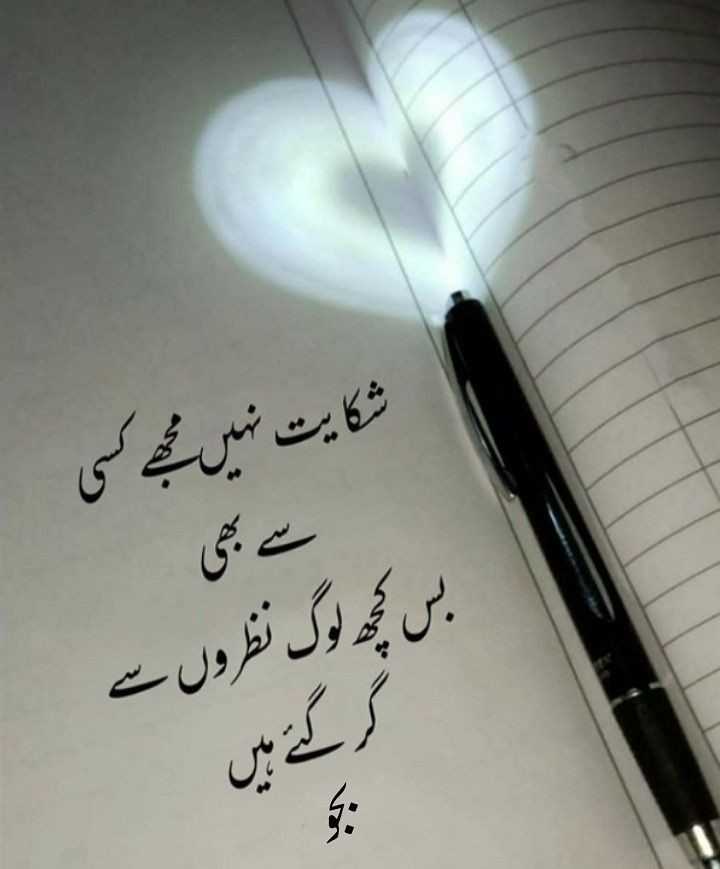 شکایت نہیں مجھے کسی
سے بھی
بس کچھ لوگ نظروں سے
گر گئے ہیں
بجو